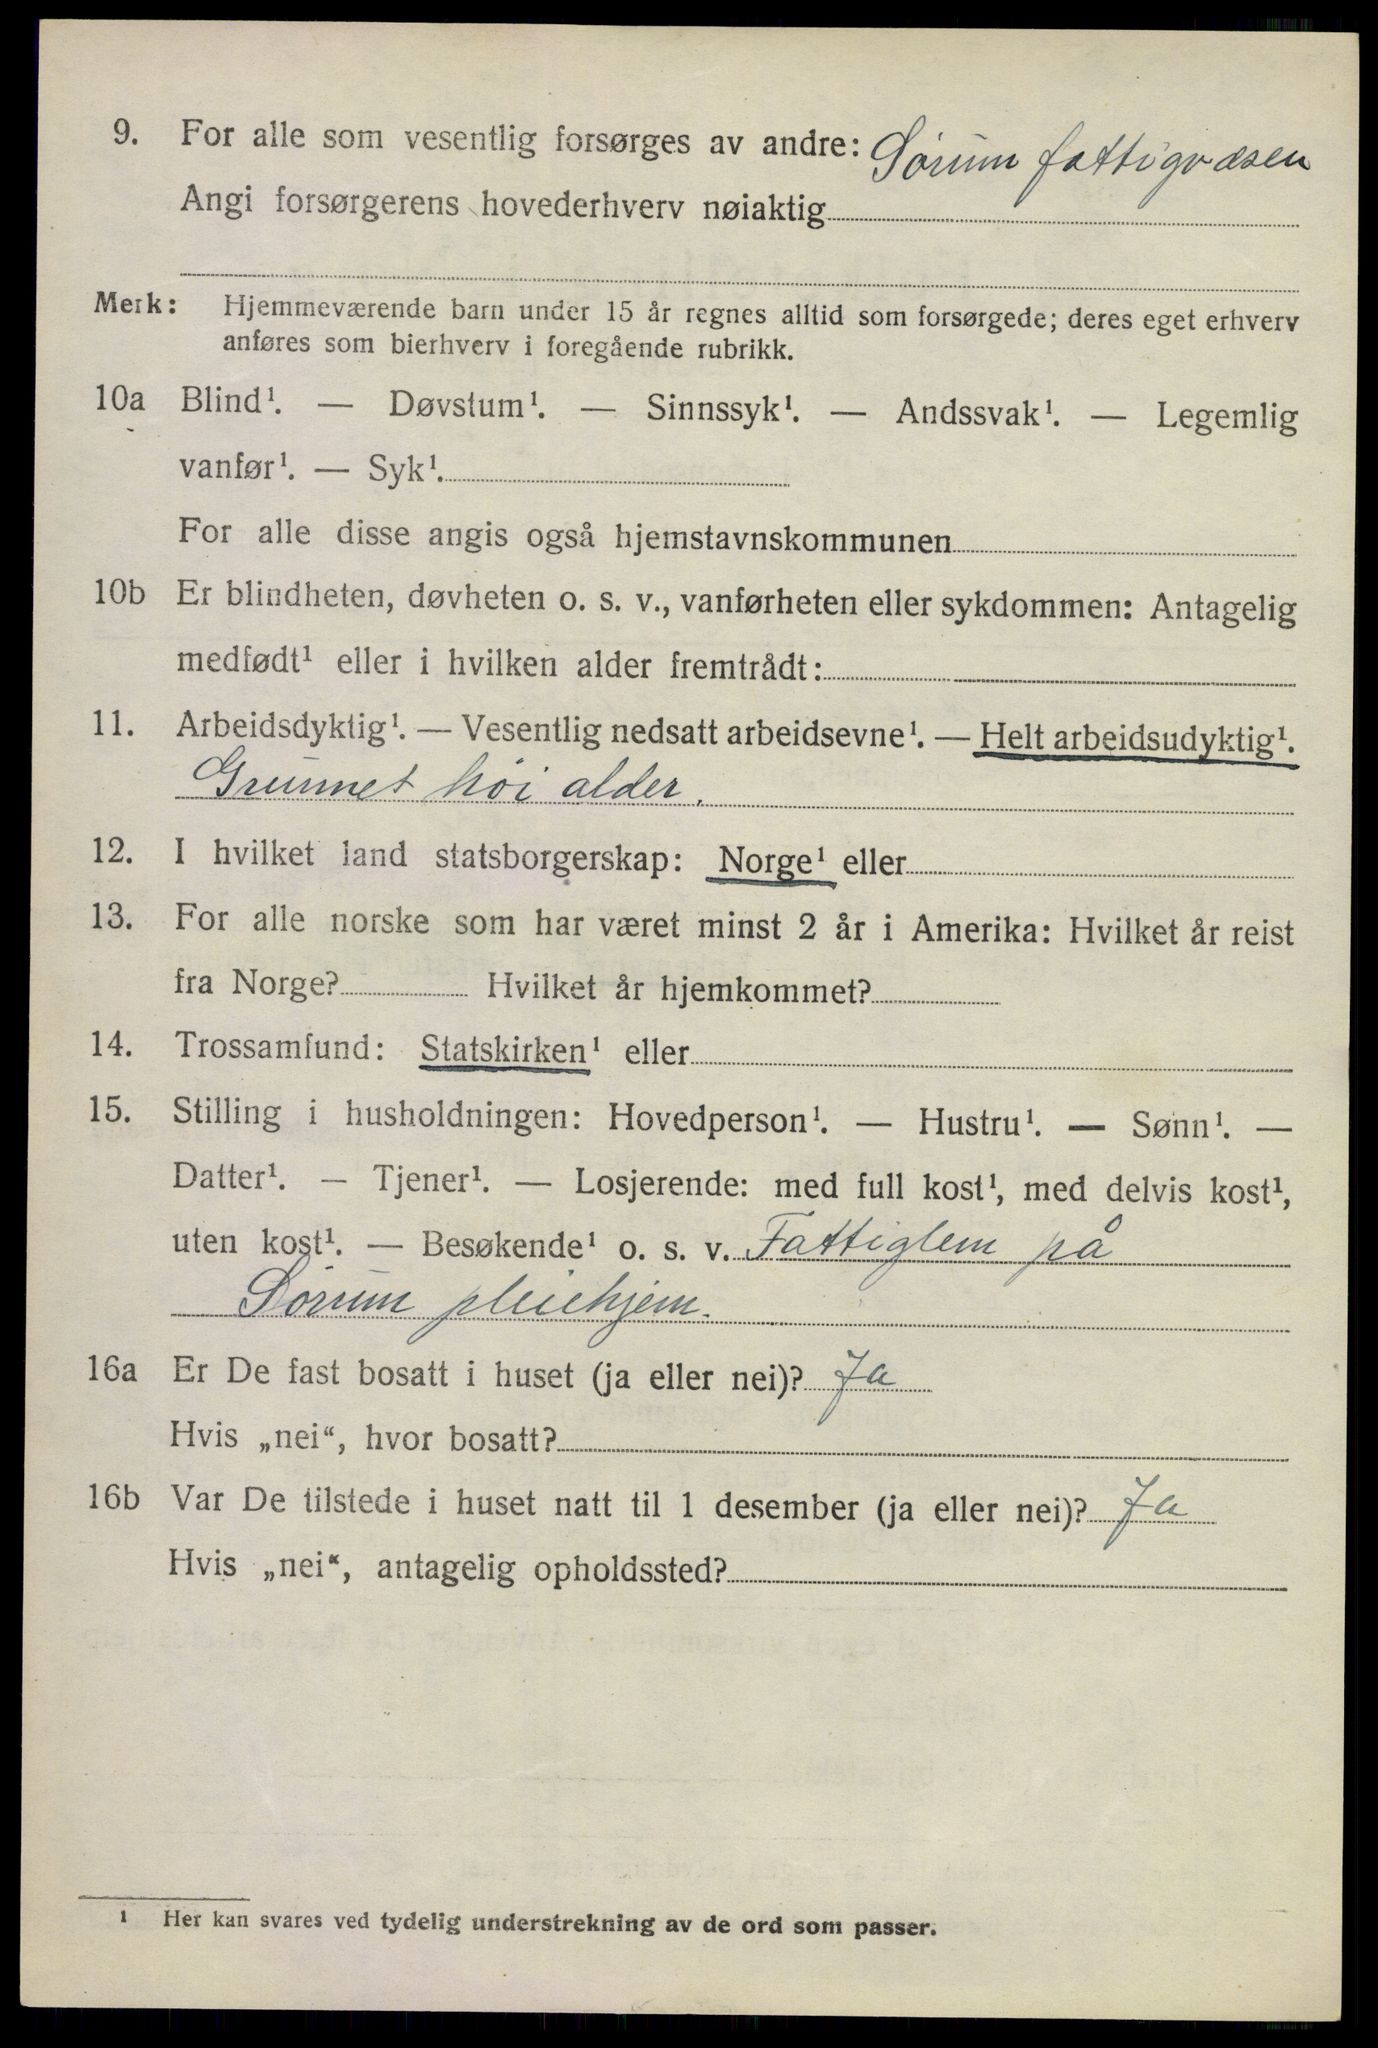 9. For alle som vesentlig forsørges av andre: Sørum fattigvæsen
Angi forsørgerens hovederhverv nøiaktig
Merk: Hjemmeværende barn under 15 år regnes alltid som forsørgede; deres eget erhverv
anføres som bierhverv i foregående rubrikk.
10a Blind¹. — Døvstum¹. — Sinnssyk¹. — Andssvak¹. — Legemlig
vanfør¹. — Syk¹.
For alle disse angis også hjemstavnskommunen
10b Er blindheten, døvheten o. s. v., vanførheten eller sykdommen: Antagelig
medfødt¹ eller i hvilken alder fremtrådt:
11. Arbeidsdyktig¹. — Vesentlig nedsatt arbeidsevne¹. — Helt arbeidsudyktig¹.
Grunnet høi alder.
12. I hvilket land statsborgerskap: Norge¹ eller
13. For alle norske som har været minst 2 år i Amerika: Hvilket år reist
fra Norge? Hvilket år hjemkommet?
14. Trossamfund: Statskirken¹ eller
15. Stilling i husholdningen: Hovedperson¹. — Hustru¹. — Sønn¹. —
Datter¹. — Tjener¹. — Losjerende: med full kost¹, med delvis kost¹,
uten kost¹. — Besøkende¹ o. s. v. Fattiglem på
Sørum pleiehjem.
16a Er De fast bosatt i huset (ja eller nei)? Ja
Hvis „nei“, hvor bosatt?
16b Var De tilstede i huset natt til 1 desember (ja eller nei)? Ja
Hvis „nei“, antagelig opholdssted?
¹ Her kan svares ved tydelig understrekning av de ord som passer.